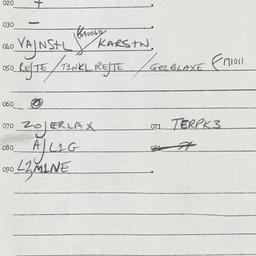 020 +
030 —
040 VAJNSTL / KARSTN
050 REJTE / TINKLREJTE / GELBLAXE
060
070 ZOJERLAX 071 TERPK3
080 AJLIG
090 LIMINE